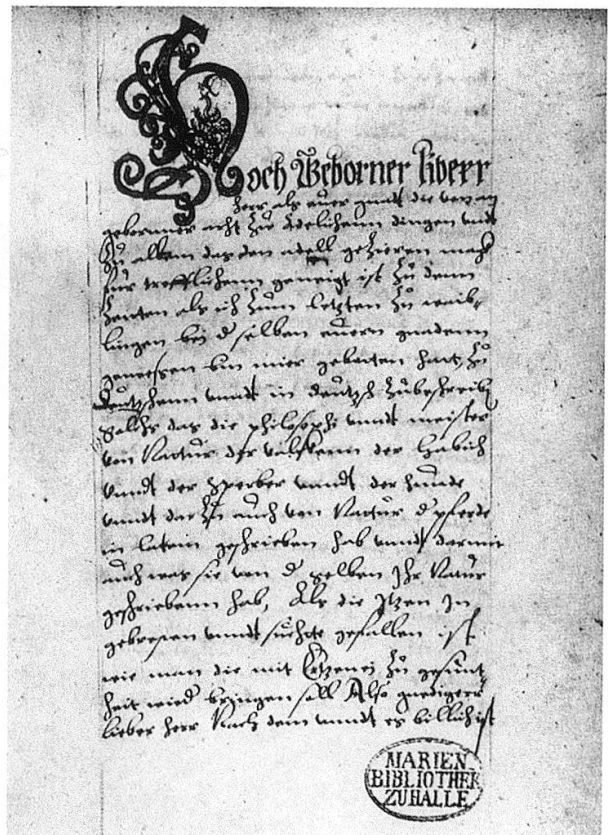 Hoch Geborner Herr
herr als euer gnadt die von an
geborner arth zu Adelichenn dingen vndt
zu allem das den adell gezieren magk
fur trefflichenn geneigt ist zu denn
Zeiten als ich zum letzten zu waib-
lingen bei d selben euern gnadenn
gewessen bin mier gebotten hatt, zu
deutzschenn vnndt in deutzsch zubeschreib
Solchs das die philosophi vnndt meister
von Nattur der valckenn der Habich
vnndt der Sperber vnndt der hunde
vnndt dar zu auch von Nattur d pferde
in latein geschrieben hab vnndt darmit
auch was sie von d selben Ihr Natur
geschriebenn hab, Als die Itzen In
gebresten vnndt suchte gefallen ist
wie man die mit Ertzenei zu gesunt-
heit wied bringen soll Also gnediger
lieber herr Nach dem vnndt es billich ist
MARIEN
BIBLIOTHEK
ZU HALLE